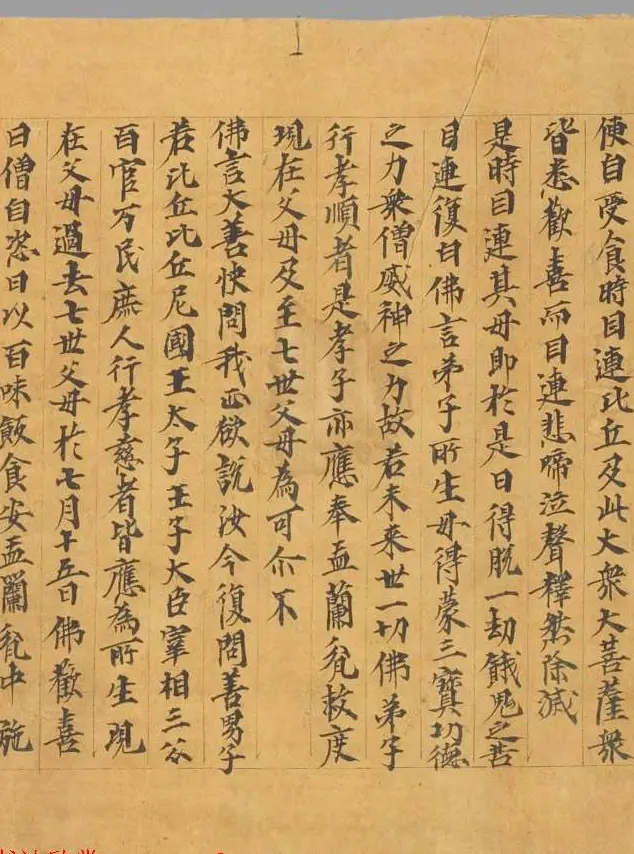 便自受食時目連比丘及此大衆大菩薩衆
皆悉歡喜而目連悲啼泣聲釋然除滅
是時目連其母即於是日得脫一劫餓鬼之苦
目連復白佛言弟子所生母得蒙三寶功德
之力衆僧威神之力故若未來世一切佛弟子
行孝順者是孝子亦應奉盂蘭瓫救度
現在父母及至七世父母為可尒不
佛言大善快問我正欲說汝今復問善男子
若比丘比丘尼國王太子王子大臣宰相三公
百官万民庶人行孝慈者皆應為所生現
在父母過去七世父母於七月十五日佛歡喜
日僧自恣日以百味飯食安盂蘭瓫中施